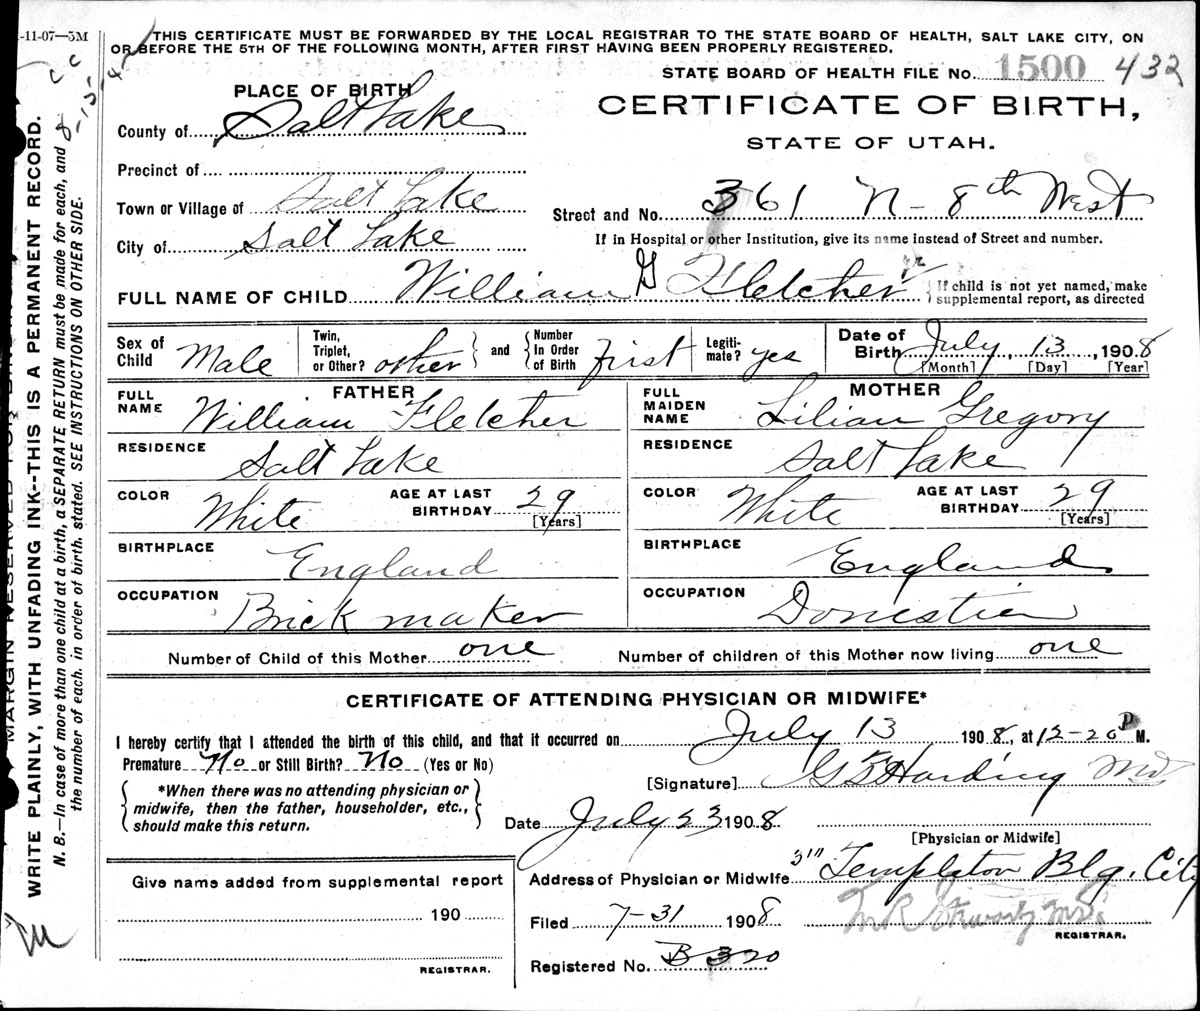 -11-07—5M
THIS CERTIFICATE MUST BE FORWARDED BY THE LOCAL REGISTRAR TO THE STATE BOARD OF HEALTH, SALT LAKE CITY, ON
OR BEFORE THE 5TH OF THE FOLLOWING MONTH, AFTER FIRST HAVING BEEN PROPERLY REGISTERED.
STATE BOARD OF HEALTH FILE No. 1500 432
PLACE OF BIRTH
CERTIFICATE OF BIRTH,
STATE OF UTAH.
County of Salt Lake
Precinct of
Town or Village of Salt Lake
City of Salt Lake
Street and No. 361 N - 8th West
If in Hospital or other Institution, give its name instead of Street and number.
FULL NAME OF CHILD William G Fletcher jr
{If child is not yet named, make
supplemental report, as directed
Sex of Child Male
Twin, Triplet, or Other? other } and { Number In Order of Birth first
Legiti-mate? yes
Date of Birth July, 13, 1908
[Month] [Day] [Year]
FATHER
FULL NAME William Fletcher
RESIDENCE Salt Lake
COLOR White AGE AT LAST BIRTHDAY 29
[Years]
BIRTHPLACE England
OCCUPATION Brick maker
MOTHER
FULL MAIDEN NAME Lilian Gregory
RESIDENCE Salt Lake
COLOR White AGE AT LAST BIRTHDAY 29
[Years]
BIRTHPLACE England
OCCUPATION
Number of Child of this Mother one Number of children of this Mother now living one
CERTIFICATE OF ATTENDING PHYSICIAN OR MIDWIFE*
I hereby certify that I attended the birth of this child, and that it occurred on July 13 1908, at 12-20 P M.
Premature No or Still Birth? No (Yes or No)
[Signature] Harding MD
*When there was no attending physician or
midwife, then the father, householder, etc.,
should make this return.
Date July 23 1908
[Physician or Midwife]
Address of Physician or Midwife 311 Templeton Blg. City
Give name added from supplemental report
190
REGISTRAR.
Filed 7-31 1908
REGISTRAR.
Registered No. B 320
MARGIN RESERVED FOR
WRITE PLAINLY, WITH UNFADING INK--THIS IS A PERMANENT RECORD.
N. B.—In case of more than one child at a birth, a SEPARATE RETURN must be made for each, and
the number of each, in order of birth, stated. SEE INSTRUCTIONS ON OTHER SIDE.